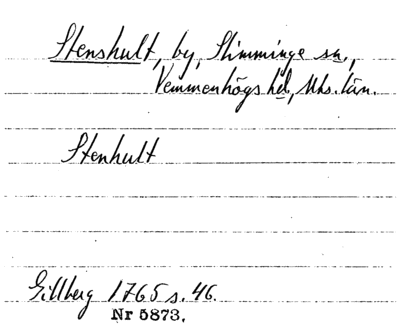 Stenshult, by, Slimminge sn.,
Vemmenhögs hd, Mhs. län.
Stenhult
Gillberg 1765 s. 46.
Nr 5873.